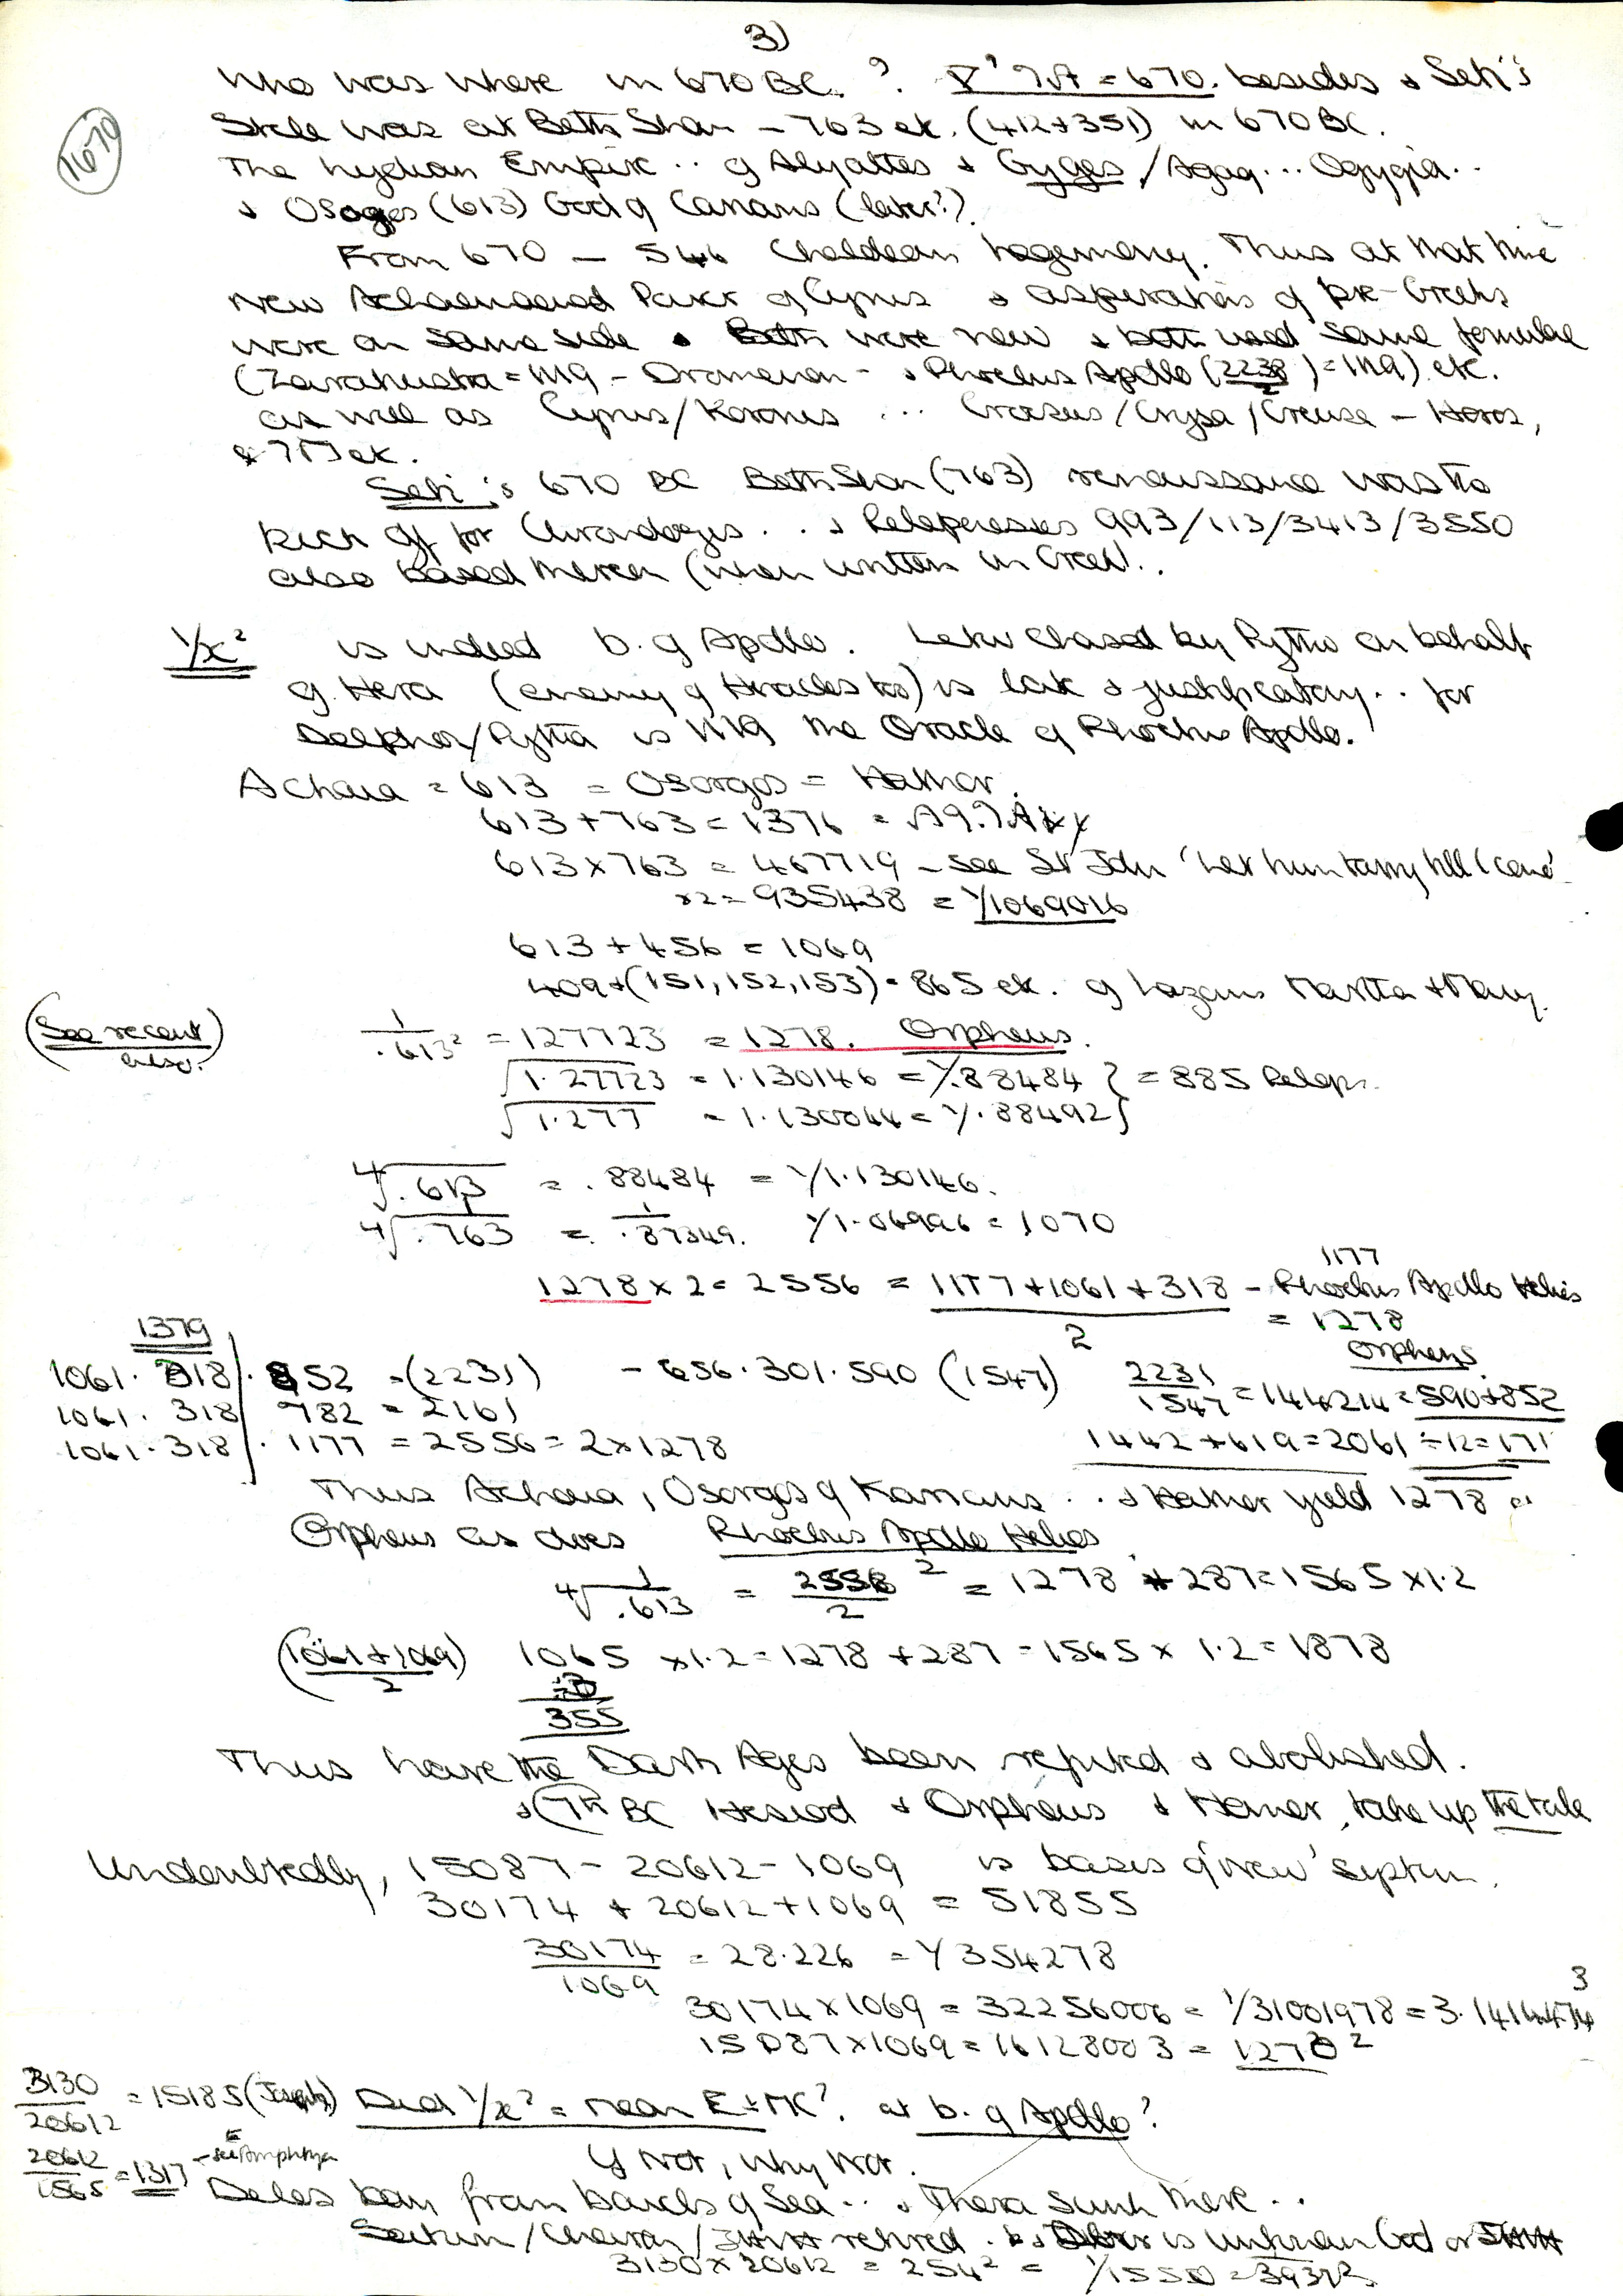 3)
1670
Who was where in 670 BC. ? = 670. besides & Seti's
Stele was at Beth Shan – 763 etc. (412+351) in 670 BC.
The Lydian Empire .. of Alyattes & Gyges / Agag ... Ogygia ..
& Osogos (613) God of Carians (later?).
From 670 – 546 Chaldean hegemony. Thus at that time
new Achaemaenid Power of Cyrus & aspirations of pre-Greeks
were on same side & Both were new & both used same formulae
(Zarathustra = 1119 – Dromenon – & Phoebus Apollo (2238/2) = 1119) etc.
as well as Cyrus/Koronis ... Croesus / Crysa / Creusa – Horos,
etc.
Seti's 670 BC Beth Shan (763) renaissance was the
kick off for . . & 993/113/3413/3550
also based thereon (when written in Greek) . .
1/x² is indeed b. of Apollo. Leto chased by Pytho on behalf
of Hera (enemy of Heracles too) is late & justificatory . . for
Delphoi/Pythia is 1119 the Oracle of Phoebus Apollo.
Achaia = 613 = Osorgos = Hathor.
613 + 763 = 1376 =
613 × 763 = 467719 – see St John 'Let him tarry till I come'
×2 = 935438 = 1/1069016
613 + 456 = 1069
409 + (151, 152, 153) = 865 etc. of Lazarus Martha & Mary.
(See recent
1/.613² = 127723 = 1278. Orpheus.
√1.27723 = 1.130146 = 1/.88484 } = 885
√1.277 = 1.130044 = 1/.88492 }
⁴√.613 = .88484 = 1/1.130146.
⁴√.763 = 1/.87349. 1/1.06996 = 1070
1278 × 2 = 2556 = 1177 + 1061 + 318 / 2 – 1177 Phoebus Apollo Helios
= 1278
Orpheus
1379
1061 . 318 / . 852 = (2231) – 656 . 301 . 590 (1547) 2231/1547 = 144214 = 590 + 852
1061 . 318 / 782 = 2161
1061 . 318 / . 1177 = 2556 = 2 × 1278 1442 + 619 = 2061 ÷ 12 = 171
Thus Achaia, Osorgos of Karians . . & Hathor yield 1278 as
Orpheus as does Phoebus Apollo Helios.
⁴√1/.613 = 2556/2 ² = 1278 + 287 = 1565 × 1.2
(1061 + 1069)/2 1065 × 1.2 = 1278 + 287 = 1565 × 1.2 = 1878
÷3
355
Thus have the Dark Ages been refuted & abolished.
& (7th BC Hesiod & Orpheus & Homer, take up the tale
Undoubtedly, 15087 – 20612 – 1069 is basis of 'new' system.
30174 + 20612 + 1069 = 51855
30174/1069 = 28.226 = 1/354278
30174 × 1069 = 32256006 = 1/31001978 = 3.1414474³
15087 × 1069 = 16128003 = 1270²
3130/20612 = 15185 (Joseph) Did 1/x² = mean E=MC². at b. of Apollo?
If Not, Why Not.
20612/1565 = 1317 – see Delos born from bowels of Sea . . & Thera sunk there . .
Saturn / / retired. is unknown God or
3130 × 20612 = 254² = 1/1550 = 3937²